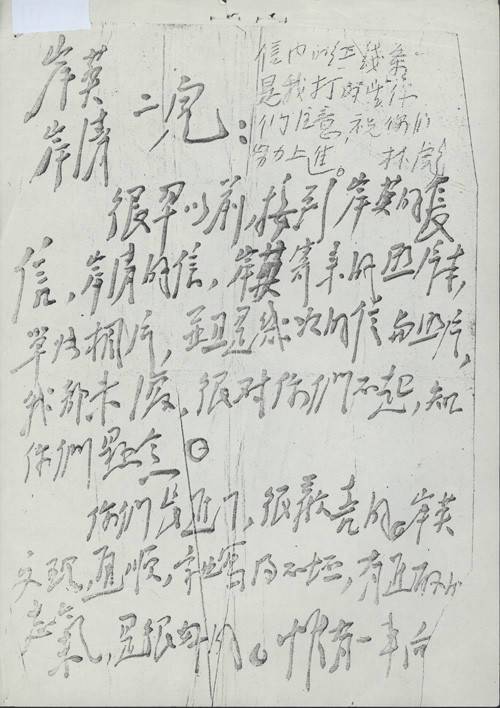 岸英
岸清
二児：
信内的红线条
是我打的望你
们注意，祝你们
努力上进。林彪
很早以前，接到岸英的長
信，岸清的信，岸英寄来的照片本，
單張相片，並且是幾次的信与照片，
我都未復，很对你們不起，知
你們懸念。
你們長進了，很歡喜的。岸英
文理通順，字也寫得不壞，有進取的
志氣，是很好的。惟有一事向